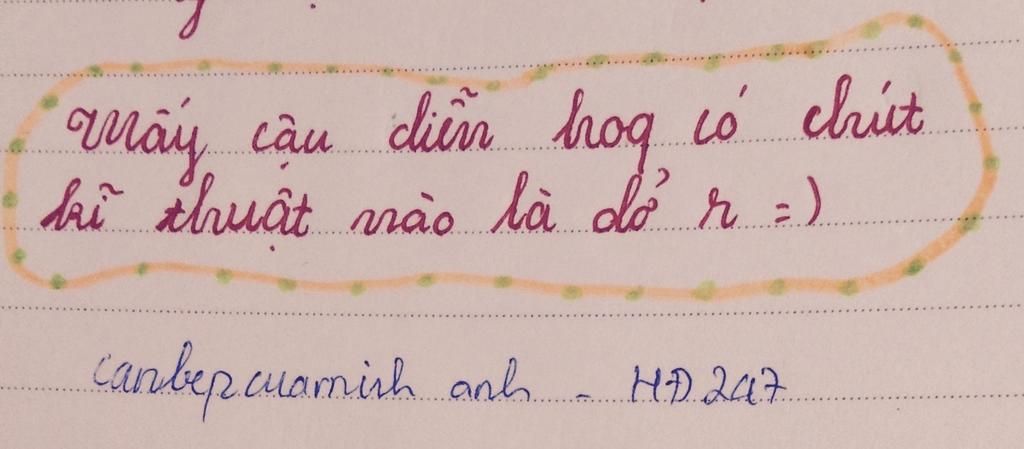 Mấy cậu diễn hog có chút
kĩ thuật nào là dở r =)
canbepcuaminh anh - HĐ247